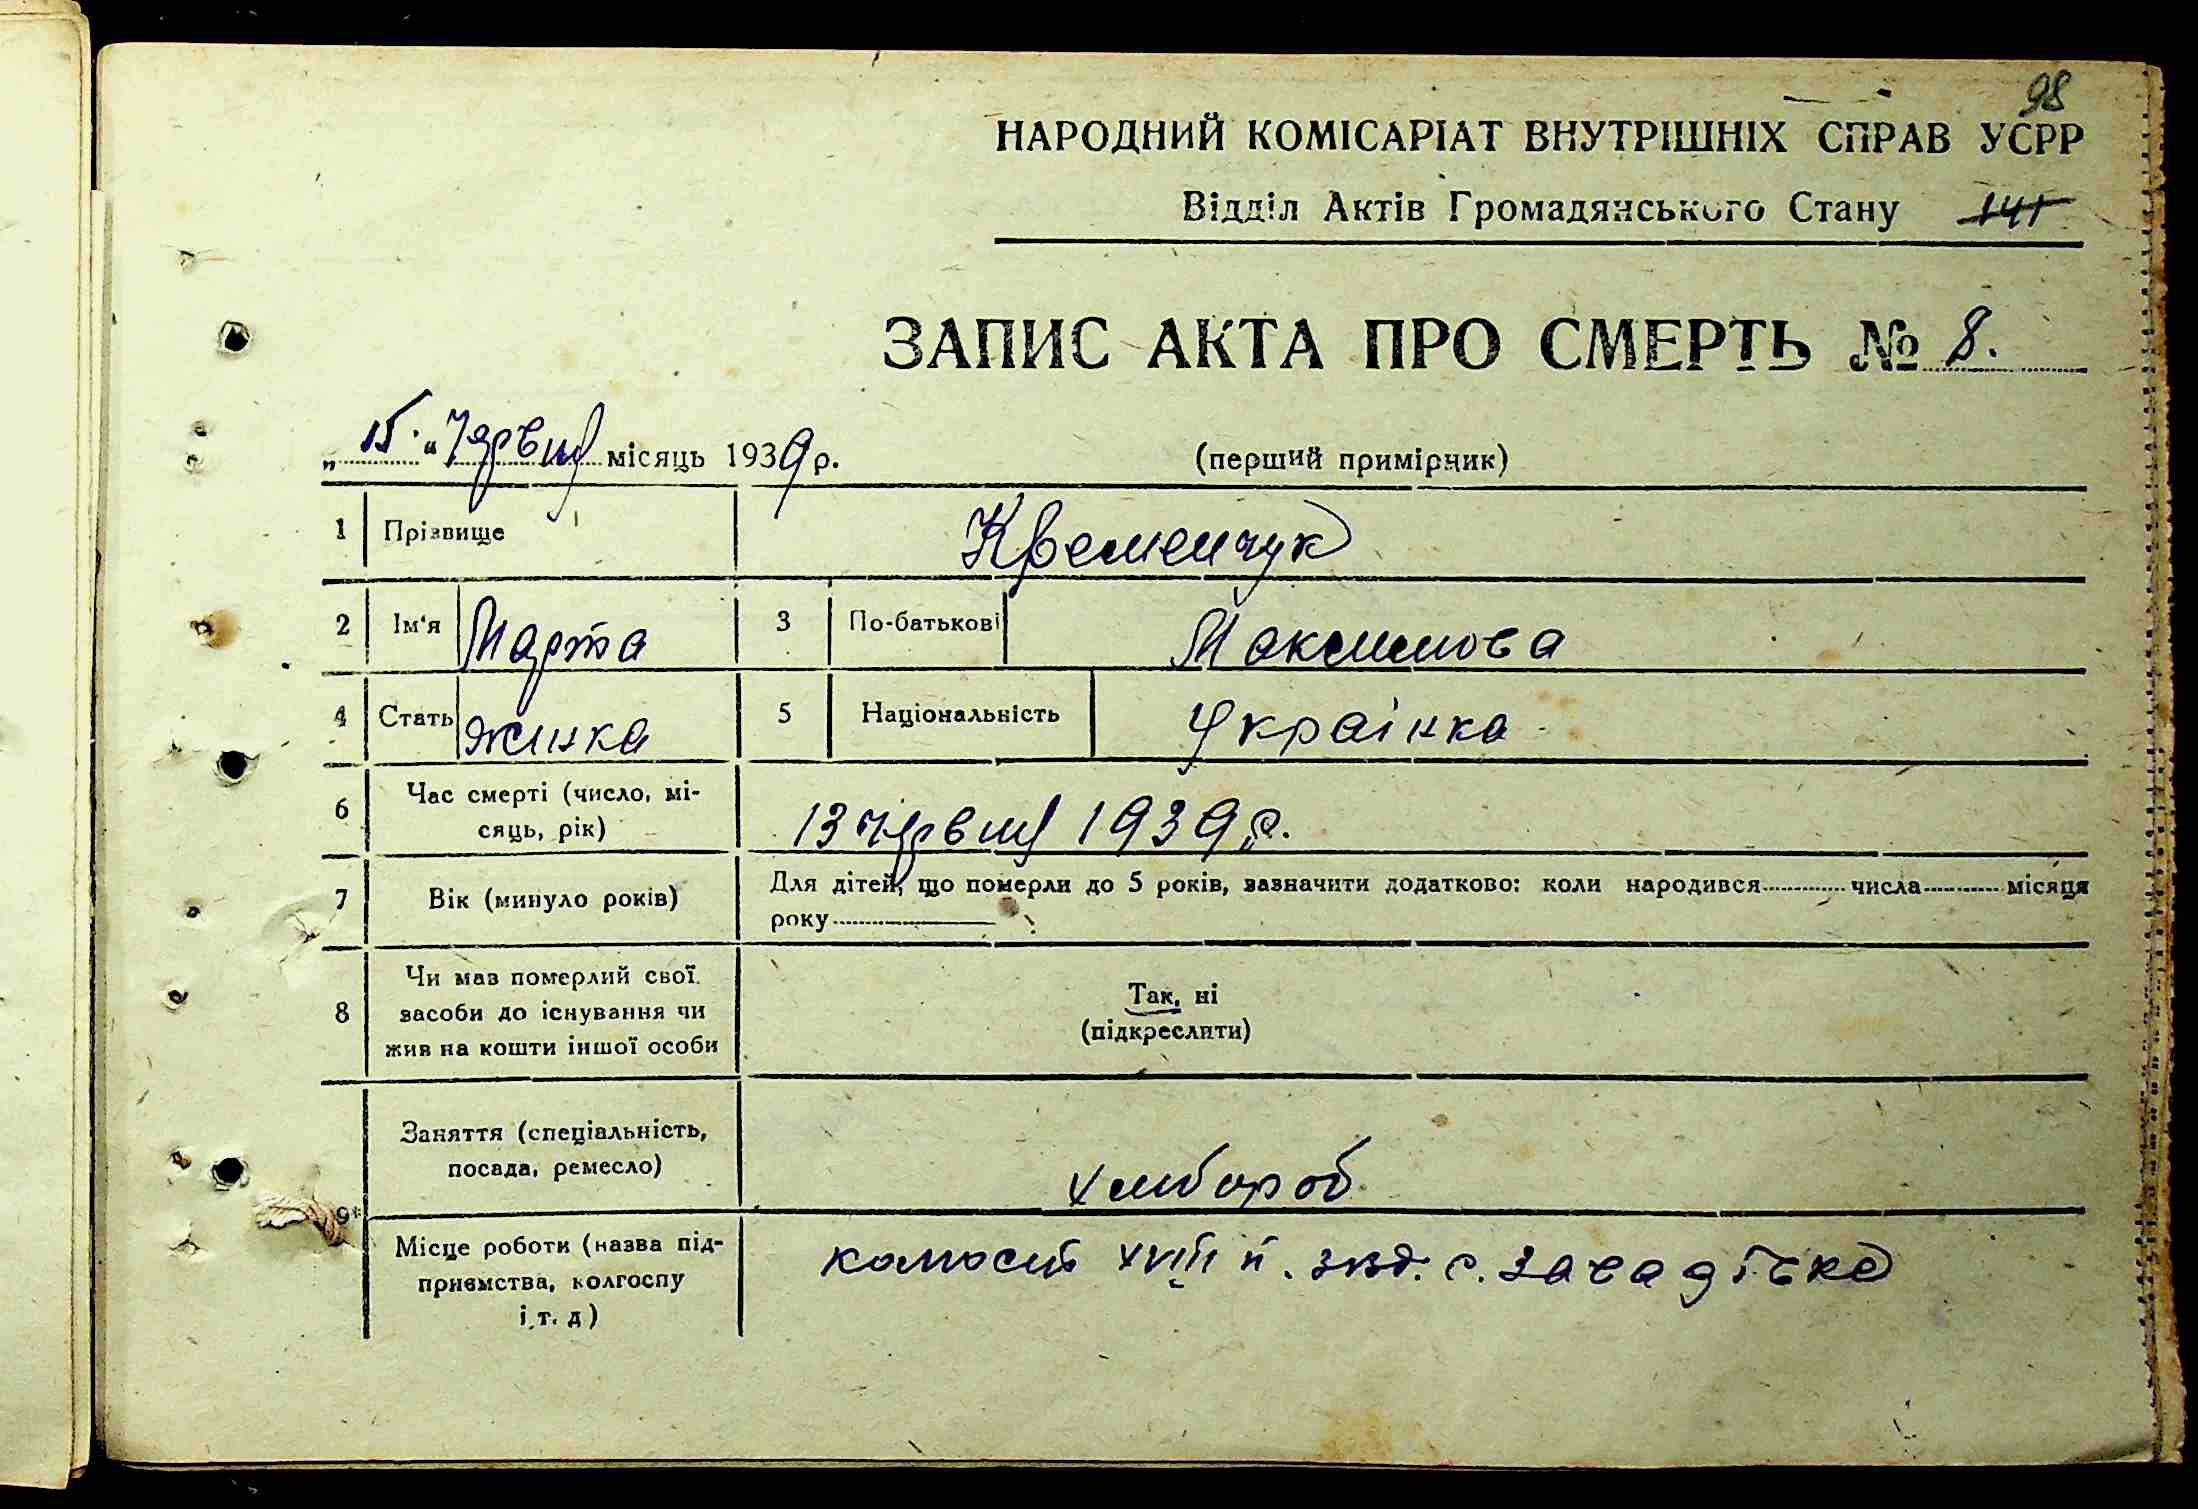 98
НАРОДНИЙ КОМІСАРІАТ ВНУТРІШНІХ СПРАВ УСРР
Відділ Актів Громадянського Стану 141
ЗАПИС АКТА ПРО СМЕРТЬ № 8.
„15“ Червня місяць 1939 р. (перший примірник)
1 Прізвище Кременчук
2 Ім'я Марта 3 По-батькові Максимова
4 Стать жинка 5 Національність Украінка
6 Час смерті (число, мі-
сяць, рік) 13 червня 1939 р.
7 Вік (минуло років) Для дітей, що померли до 5 років, зазначити додатково: коли народився числа місяця
року
8 Чи мав померлий свої
засоби до існування чи
жив на кошти іншої особи
Так, ні
(підкреслити)
Заняття (спеціальність,
посада, ремесло) хлибороб
9*
Місце роботи (назва під-
приємства, колгоспу
і т. д) XVIII п. с.